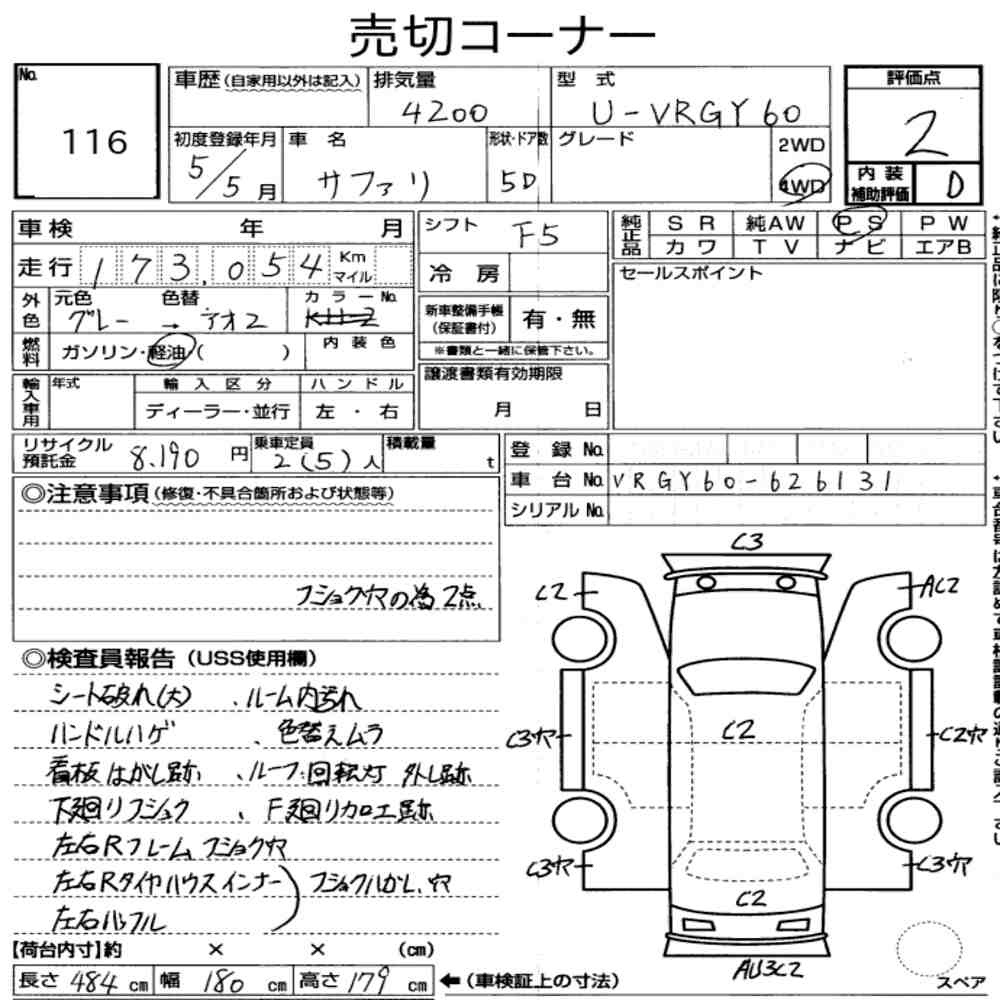 売切コーナー
No.
116
車歴(自家用以外は記入)
排気量
4200
型 式
U-VRGY60
評価点
2
初度登録年月
5/5月
車 名
サファリ
形状・ドア数
5D
グレード
2WD
4WD
内装補助評価
D
車検 年 月
シフト
F5
純正品
SR 純AW PS PW
カワ TV ナビ エアB
走行 173,054 Km マイル
冷房
セールスポイント
外色
元色 色替
グレー → アオ2
カラーNo.
KH2
新車整備手帳(保証書付)
有・無
※書類と一緒に保管下さい。
燃料
ガソリン・軽油( )
内装色
輸入車用
年式
輸入区分
ディーラー・並行
ハンドル
左・右
譲渡書類有効期限
月 日
リサイクル預託金
8,190円
乗車定員
2(5)人
積載量
t
登録No.
車台No. VRGY60-626131
シリアルNo.
◎注意事項(修復・不具合箇所および状態等)
フショク穴の為2点
◎検査員報告(USS使用欄)
シート破れ(大)、ルーム内汚れ
ハンドルハゲ、色替えムラ
看板はがし跡、ルーフ回転灯外し跡
下廻りフショク、F廻りカロ工跡
左右Rフレームフショク穴
左右Rタイヤハウスインナー
左右バッフル
フショクハガレ、穴
【荷台内寸】約 × × (cm)
長さ484cm 幅180cm 高さ179cm ←(車検証上の寸法)
C3
C2
AC2
C3穴
C2
C2穴
C3穴
C3穴
C2
AU3C2
スペア